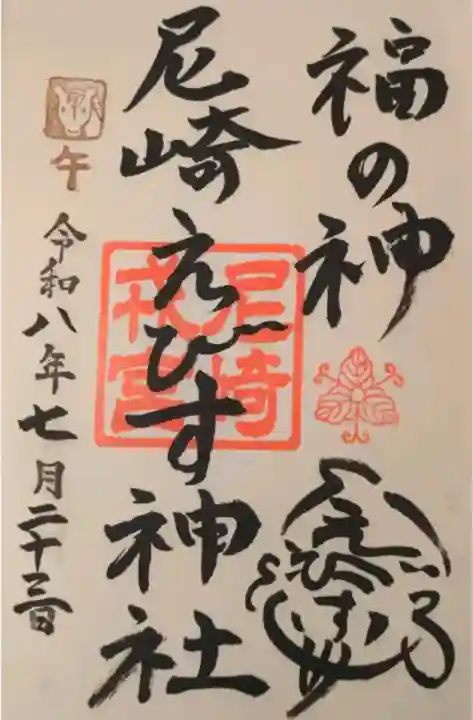 福の神
尼崎えびす神社
尼崎
戎宮
午
令和八年七月二十三日